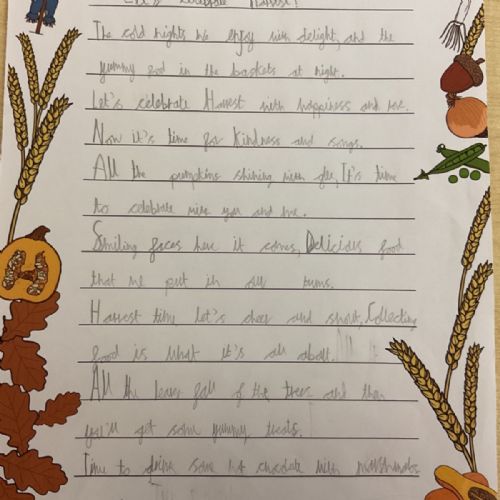 Let's celebrate Harvest!
The cold nights we enjoy with delight, and the
yummy food in the baskets at night.
Let's celebrate Harvest with happiness and love.
Now it's time for Kindness and songs.
All the pumpkins shining with glee, It's time
to celebrate with you and me.
Smiling faces here it comes, Delicious food
that we put in our tums.
Harvest time let's cheer and shout, Collecting
food is what it's all about.
All the leaves fall of the trees and then
you'll get some yummy treats.
Time to drink some hot chocolate with marshmallows